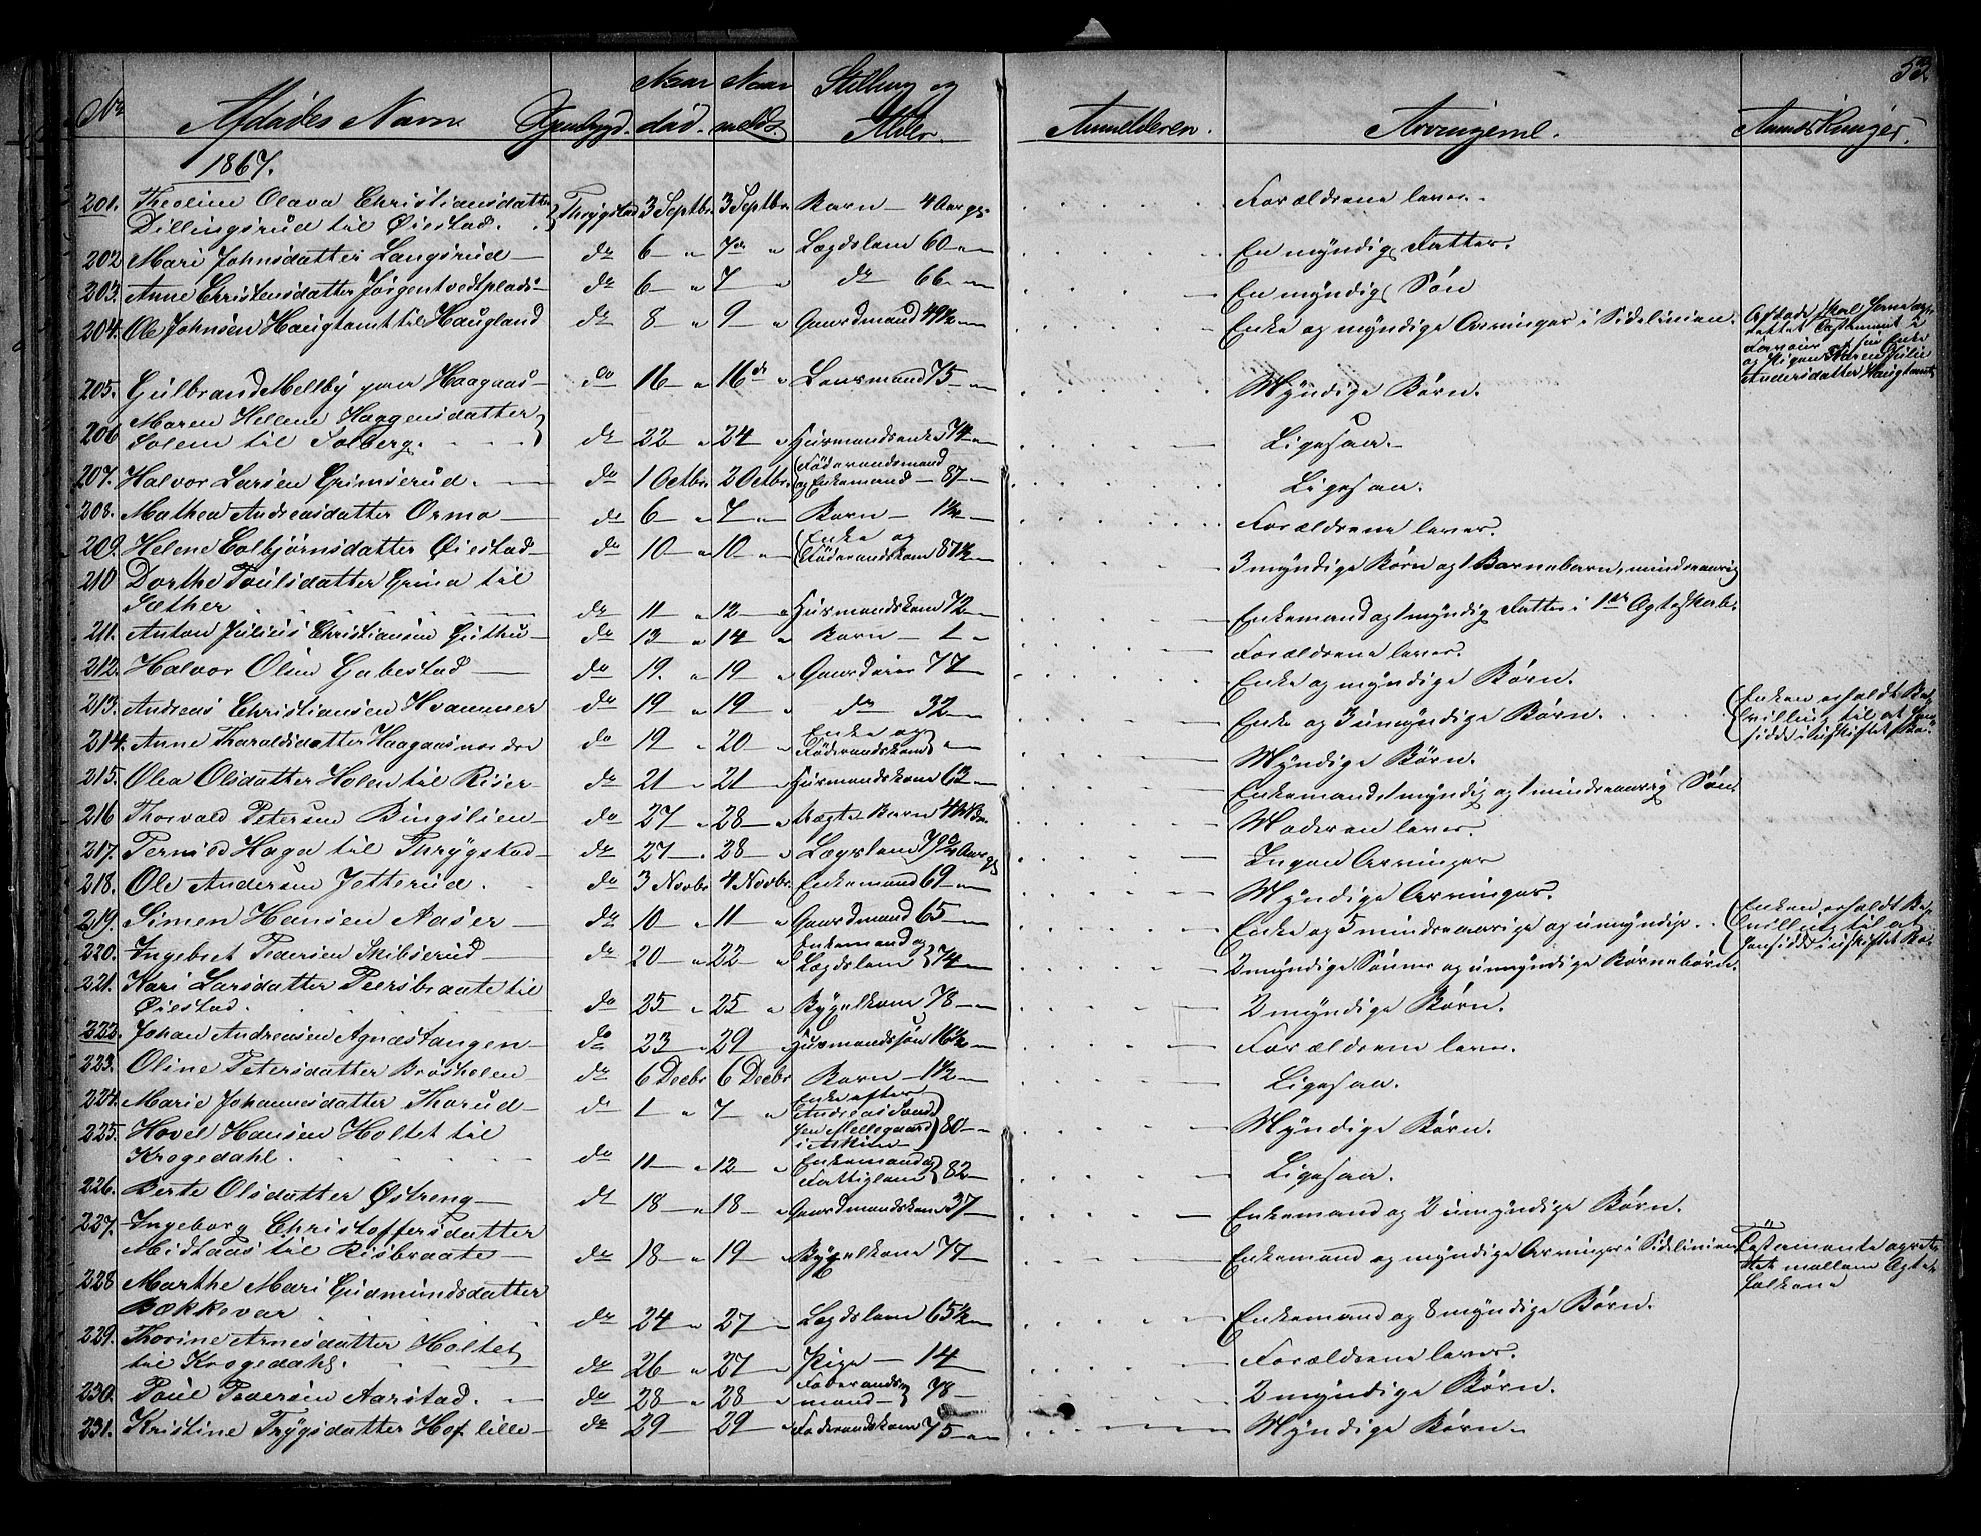 53
No Afdødes Navn Tjenbygd. Naar død. Naar meldt. Stilling og Alder. Anmelderen. Arvingerne. Anmerkninger.
1867.
201. Theoline Olava Christiansdatter Dillingsrud til Øiestad. Thrygstad 3 Septbr. 3 Septbr. Barn 4 Aar gl. Forældrene lever.
202 Mari Johnsdatter Langsrud do 6 " 7de " Lægdslem 60 En myndig Datter.
203. Anne Christensdatter Jørgentvedtplads do 6 " 7 " do 66 En myndig Søn
204. Ole Johnsen Haugtamt til Haugland do 8 " 9 " Gaardmand 49½ Enke og myndige Arvinger i Sidelinien. Afdøde skal have oprettet Testament i Faveur af sin Enke og Pigen Karen Julie Andersdatter Haugtamt
205. Gulbrand Melby paa Haagaas do 16 " 16de " Lensmand 75 Myndige Børn.
206 Maren Hellene Haagensdatter Solem til Solberg. do 22 " 24 " Husmandsenke 74 Ligesaa.
207. Halvor Larsen Grimsrud. do 1 Octbr. 2 Octbr. Føderaadsmand og Enkemand 87 Ligesaa.
208. Mathea Andreasdatter Ormo do 6 " 7 " Barn 1½ Forældrene lever.
209. Helene Colbjørnsdatter Øiestad do 10 " 10 " Enke og Føderaadskone 87½ 3 myndige Børn og 1 Barnebarn, mindreaarig
210 Dorthe Poulsdatter Grina til Sæther do 11 " 12 " Husmandskone 72 Enkemand og 1 myndig Datter i 1ste Ægteskab.
211. Anton Julius Christiansen Guthu do 13 " 14 " Barn 1 " Forældrene lever.
212. Halvor Olsen Gabestad do 19. " 19 " Gaardeier 77 Enke og myndige Børn.
213. Andreas Christiansen Hvammer do 19 " 19 " do 32 Enke og 3 umyndige Børn. Enken erholdt Bevilling til at hensidde i uskiftet Bo.
214. Anne Tharaldsdatter Haagaas nordre do 19 " 20 " Enke og Føderaadskone " Myndige Børn.
215. Olea Olsdatter Holen til Riser do 21 " 21 " Husmandskone 63 Enkemand 1 myndig og 1 mindreaarig Søn
216 Thorvald Petersen Bingslien do 27 " 28 " Uægte Barn Moderen lever.
217. Pernild Haga til Thrygstad do 27 " 28 " Lægdslem Aar gl Ingen Arvinger
218. Ole Andersen Jetterud. do 3 Novbr. 4 Novbr. Enkemand 69 Myndige Arvinger.
219. Simen Hansen Aaser do 10 " 11 " Gaardmand 65 Enke og 5 mindreaarige og umyndige. Enken erholdt Bevilling til at hensidde i uskiftet Bo.
220. Ingebret Pedersen Skibserud do 20 " 22 " Enkemand og Lægdslem 74 2 myndige Sønner og umyndige Børnebørn.
221. Kari Larsdatter Peersbraate til Øiestad. do 25 " 25 " Bygselkone 78 2 myndige Børn.
222. Johan Andreasen Agnæstangen do 23 " 29 " Husmandssøn 16½ Forældrene lever.
223. Oline Petersdatter Brøsholen do 6 Decbr 6 Decbr Barn 1½ Ligesaa.
224. Marie Johannesdatter Thorud do 1 " 7 " Enke efter Andreas i Askim 80 Myndige Børn.
225. Hovel Hansen Holtet til Krogedahl. do 11 " 12 " Enkemand og Fattiglem 82 Ligesaa.
226. Berte Olsdatter Østreng do 18 " 18 " Gaardmandskone 37 Enkemand og 2 umyndige Børn.
227. Ingeborg Christoffersdatter Midtaas til Risbraate do 18 " 19 " Bygselkone 77 Enkemand og myndige Arvinger i Sidelinien Testamente oprettet mellem Ægtefolkene
228 Marthe Mari Gudmundsdatter Bækkevar do 24 " 27 " Lægdslem 65½ Enkemand og 8 myndige Børn.
229. Thorine Arnesdatter Holtet til Krogedahl. do 26 " 27 Pige 14 Forældrene lever.
230. Poul Pedersen Aarstad. do 28 " 28 " Føderaadsmand 78 2 myndige Børn.
231. Kristine Trygsdatter Hof lille do 29 " 29 " Føderaadskone 75 Myndige Børn